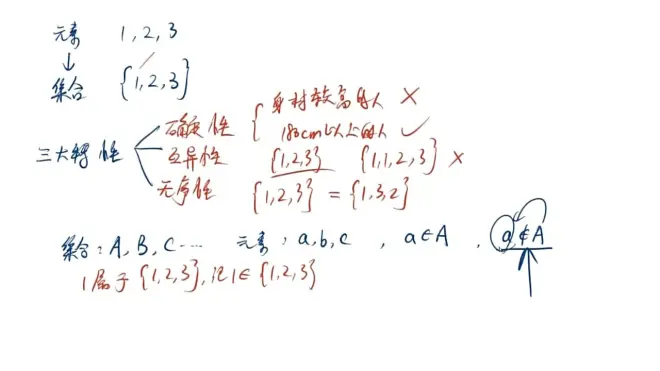 元素 1, 2, 3
↓
集合 {1, 2, 3}
三大特性
确定性 { 身材较高的人 ×
180cm以上的人 ✓
互异性 {1, 2, 3} {1, 1, 2, 3} ×
无序性 {1, 2, 3} = {1, 3, 2}
集合: A, B, C … 元素: a, b, c , a∈A , a∉A
1属于{1, 2, 3}, 记1∈{1, 2, 3}